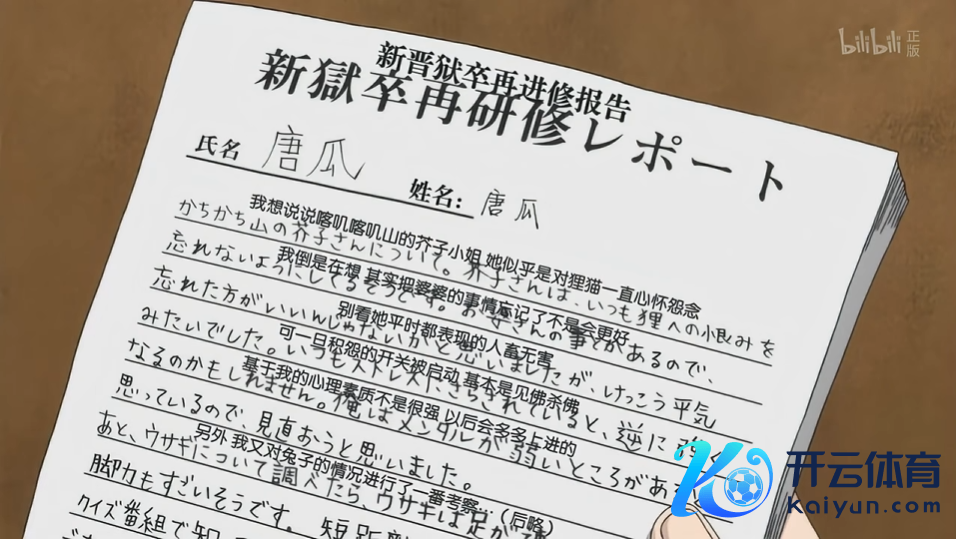 bilibili 正版
新晋狱卒再进修报告
新獄卒再研修レポート
氏名 唐瓜
姓名: 唐瓜
我想说说喀叽喀叽山的芥子小姐 她似乎是对狸猫一直心怀怨念
かちかち山の芥子さんについて。芥子さんは、いつも狸への恨みを
我倒是在想 其实把婆婆的事情忘记了不是会更好
忘れないようにしてるそうです。お婆さんの事とかあるので、
别看她平时都表现的人畜无害
忘れた方がいいんじゃないかと思いましたが、けっこう平気
可一旦积怨的开关被启动 基本是见佛杀佛
みたいでした。いつもストレスにさらされていると、逆に強く
基于我的心理素质不是很强 以后会多多上进的
なるのかもしれません。俺はメンタルが弱いところがあ
思っているので、見直おうと思いました。
另外 我又对兔子的情况进行了一番考察…(后略)
あと、ウサギについて調べたら、ウサギは足が
脚力もすごいそうです。短距
クイズ番組で知
开云体育
Kaiyun.com